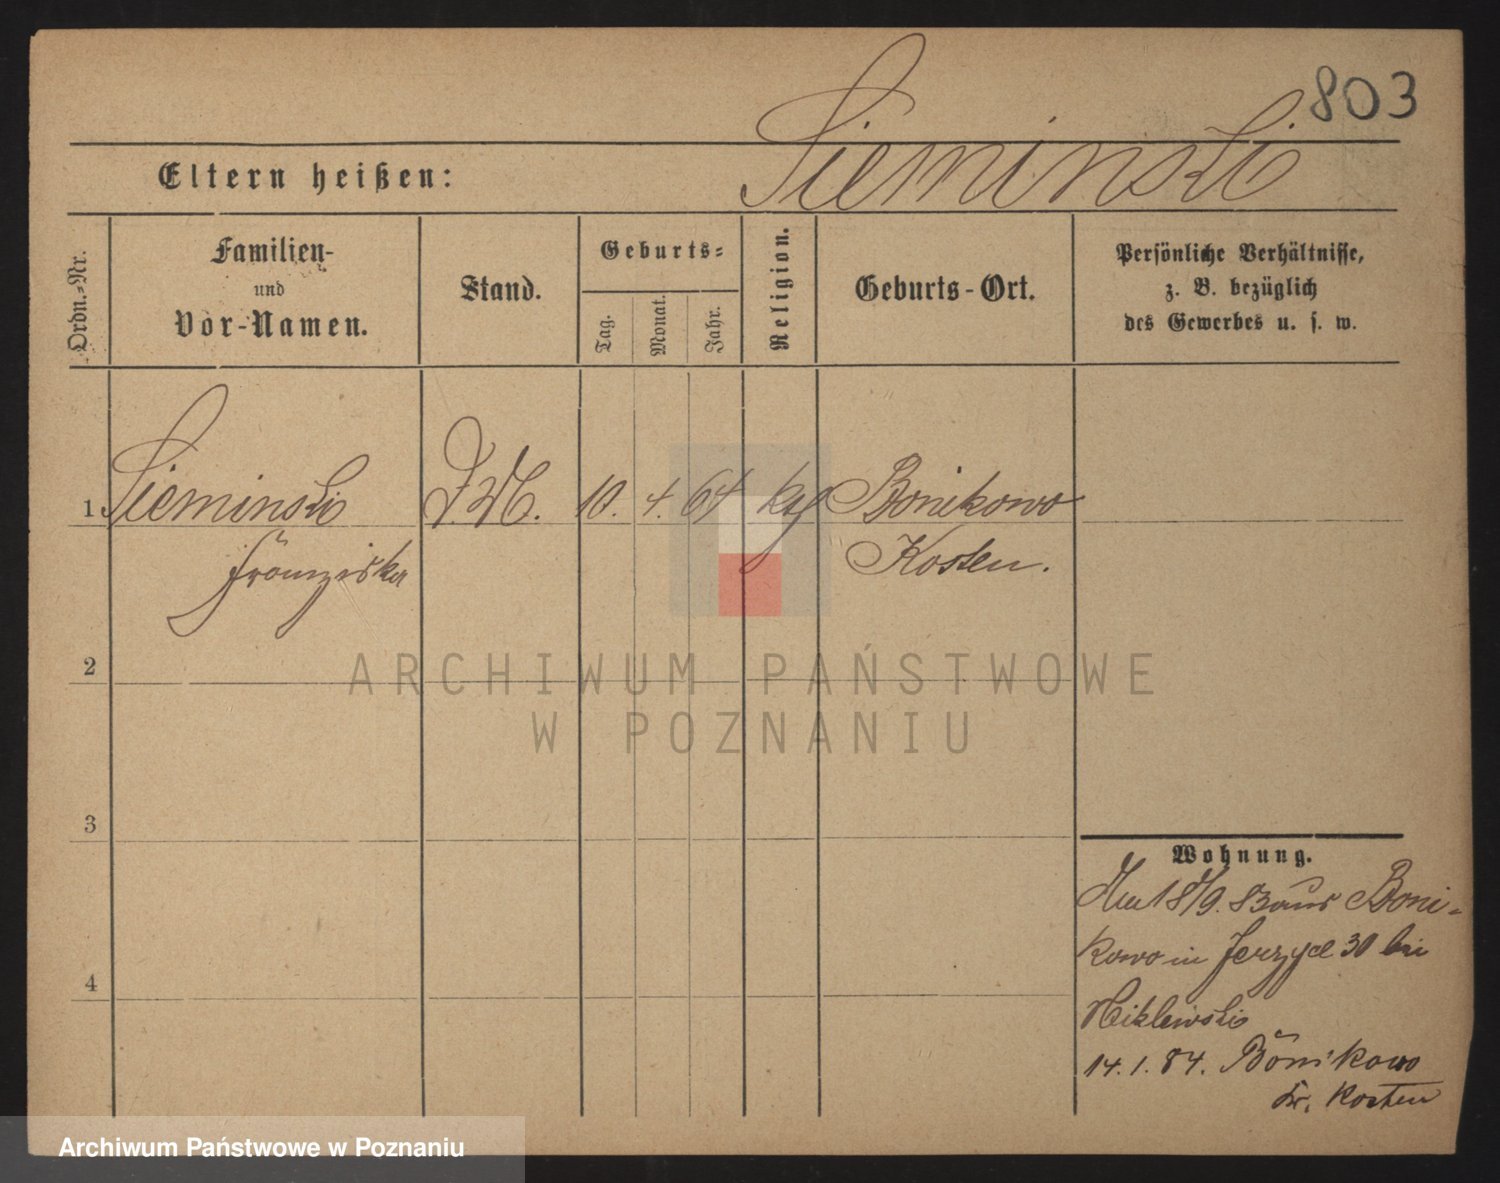 803
Sieminski
Eltern heißen:
Ordn.-Nr.
Familien-
und
Vor-Namen.
Stand.
Geburts-
Tag.
Monat.
Jahr.
Religion.
Geburts-Ort.
Persönliche Verhältnisse,
z. B. bezüglich
des Gewerbes u. s. w.
1. Sieminski D. M. 10. 4. 64 kt Bonikowo
Franziska Kosten.
2
3
4
Wohnung.
18/9. 83 aus Boni-
kowo in Jerzyce 30 bei
Niklewski
14. 1. 84. Bonikowo
Kr. Kosten
ARCHIWUM PAŃSTWOWE
W POZNANIU
Archiwum Państwowe w Poznaniu